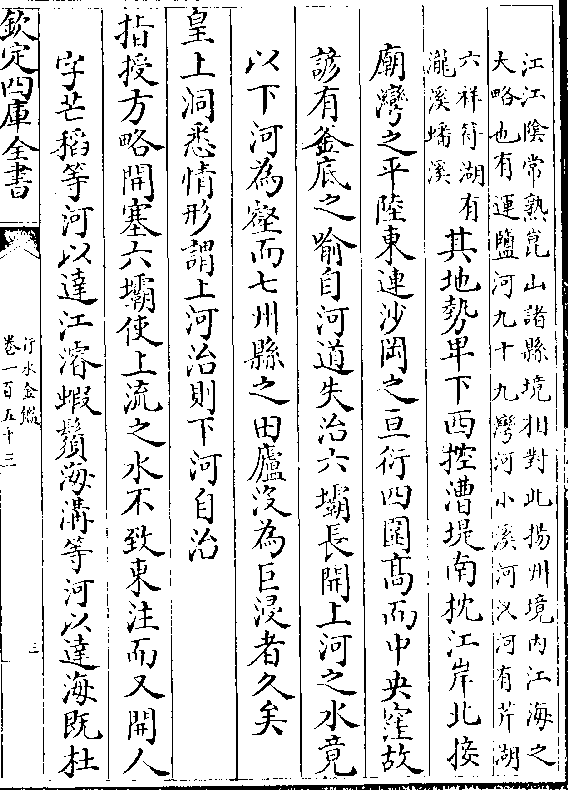 江江陰常熟崑山諸縣境相對此揚州境内江海之
大略也有運鹽河九十九灣河小溪河乂河有芹湖
六祥符湖有
瀧溪蟠溪
其地勢卑下西控漕堤南枕江岸北接
廟灣之平陸東連沙岡之亘衍四圍髙而中央窪故
諺有釜底之喻自河道失治六壩長開上河之水竟
以下河為壑而七州縣之田廬沒為巨浸者久矣
皇上洞悉情形謂上河治則下河自治
指授方略開塞六壩使上流之水不致東注而又開人
字芒稻等河以達江濬蝦鬚海溝等河以達海既杜
欽定四庫全書
行水金鑑
卷一百五十三
三